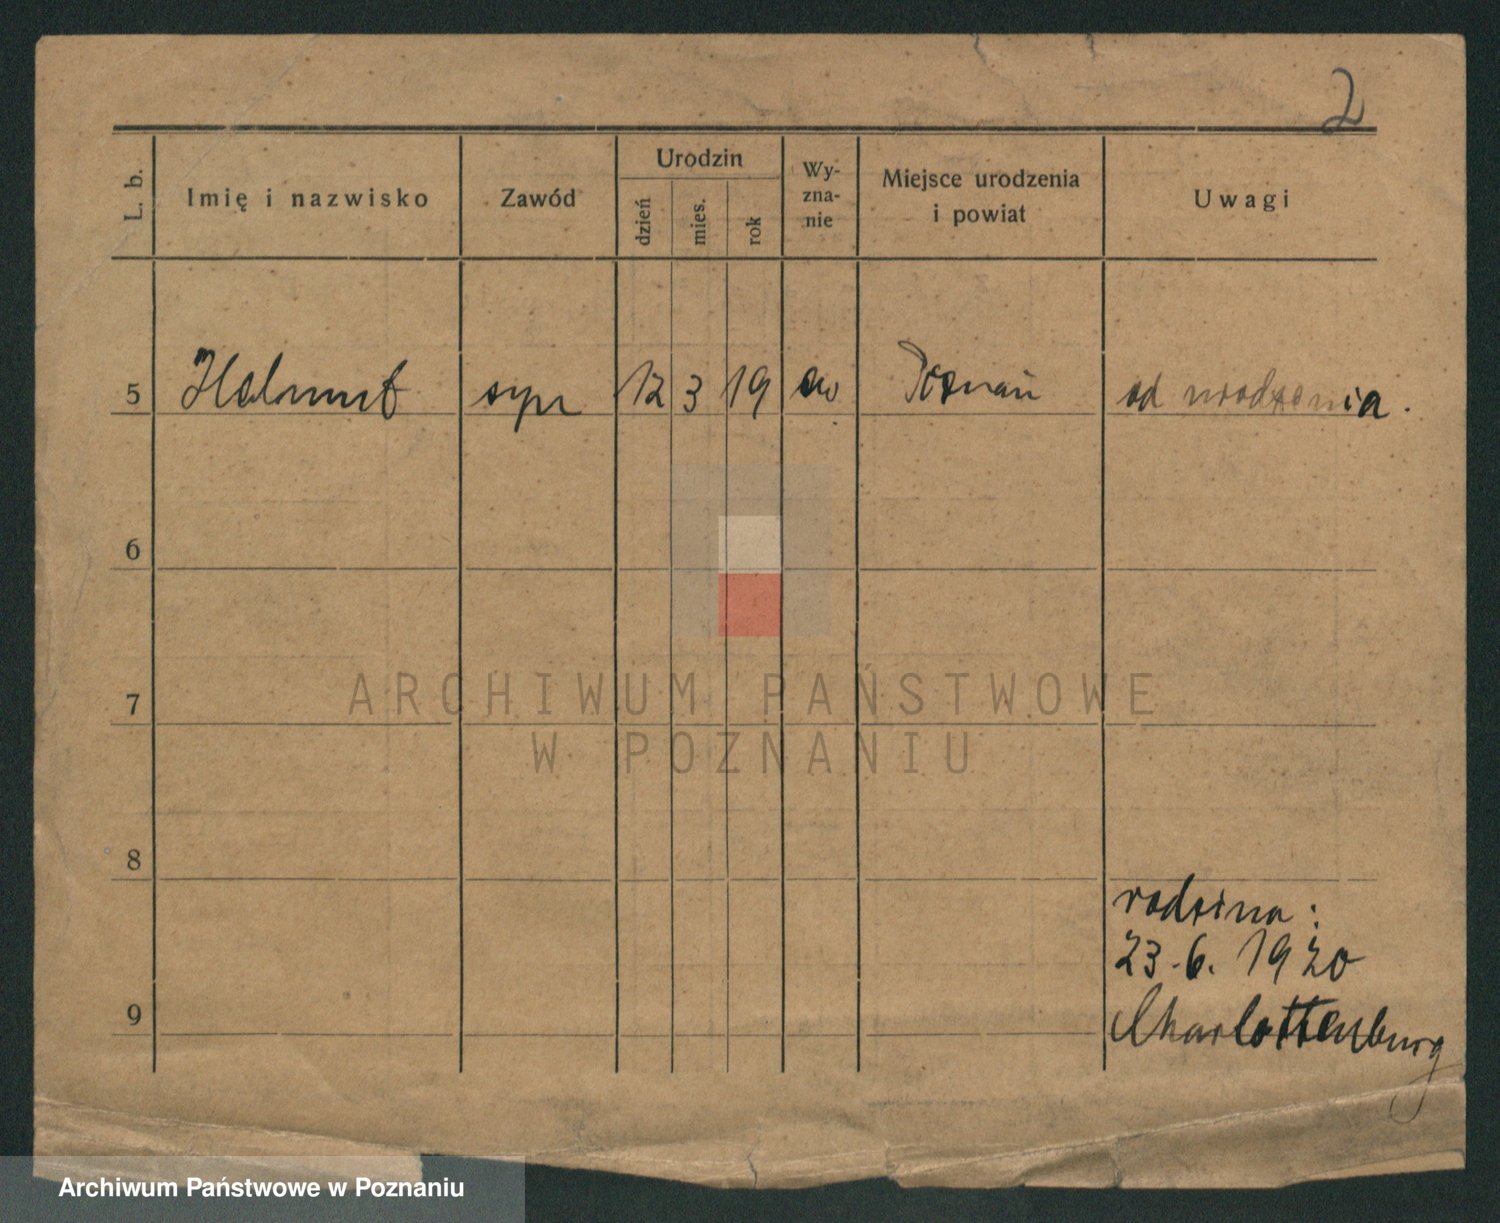 2
L. b.
Imię i nazwisko
Zawód
Urodzin
dzień
mies.
rok
Wy-
zna-
nie
Miejsce urodzenia
i powiat
Uwagi
5 Helmut syn 12 3 19 ew Poznań od urodzenia.
6
7
8
9
rodzina:
23.6. 1920
Charlottenburg
ARCHIWUM PAŃSTWOWE
W POZNANIU
Archiwum Państwowe w Poznaniu